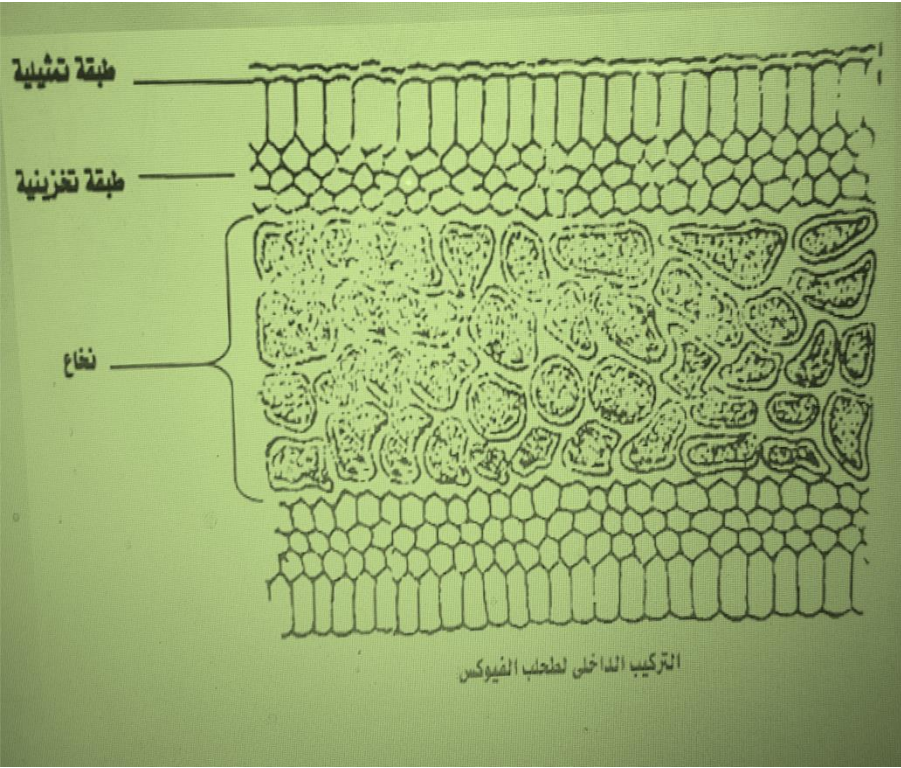 طبقة تمثيلية
طبقة تخزينية
نخاع
التركيب الداخلى لطحلب الفيوكس